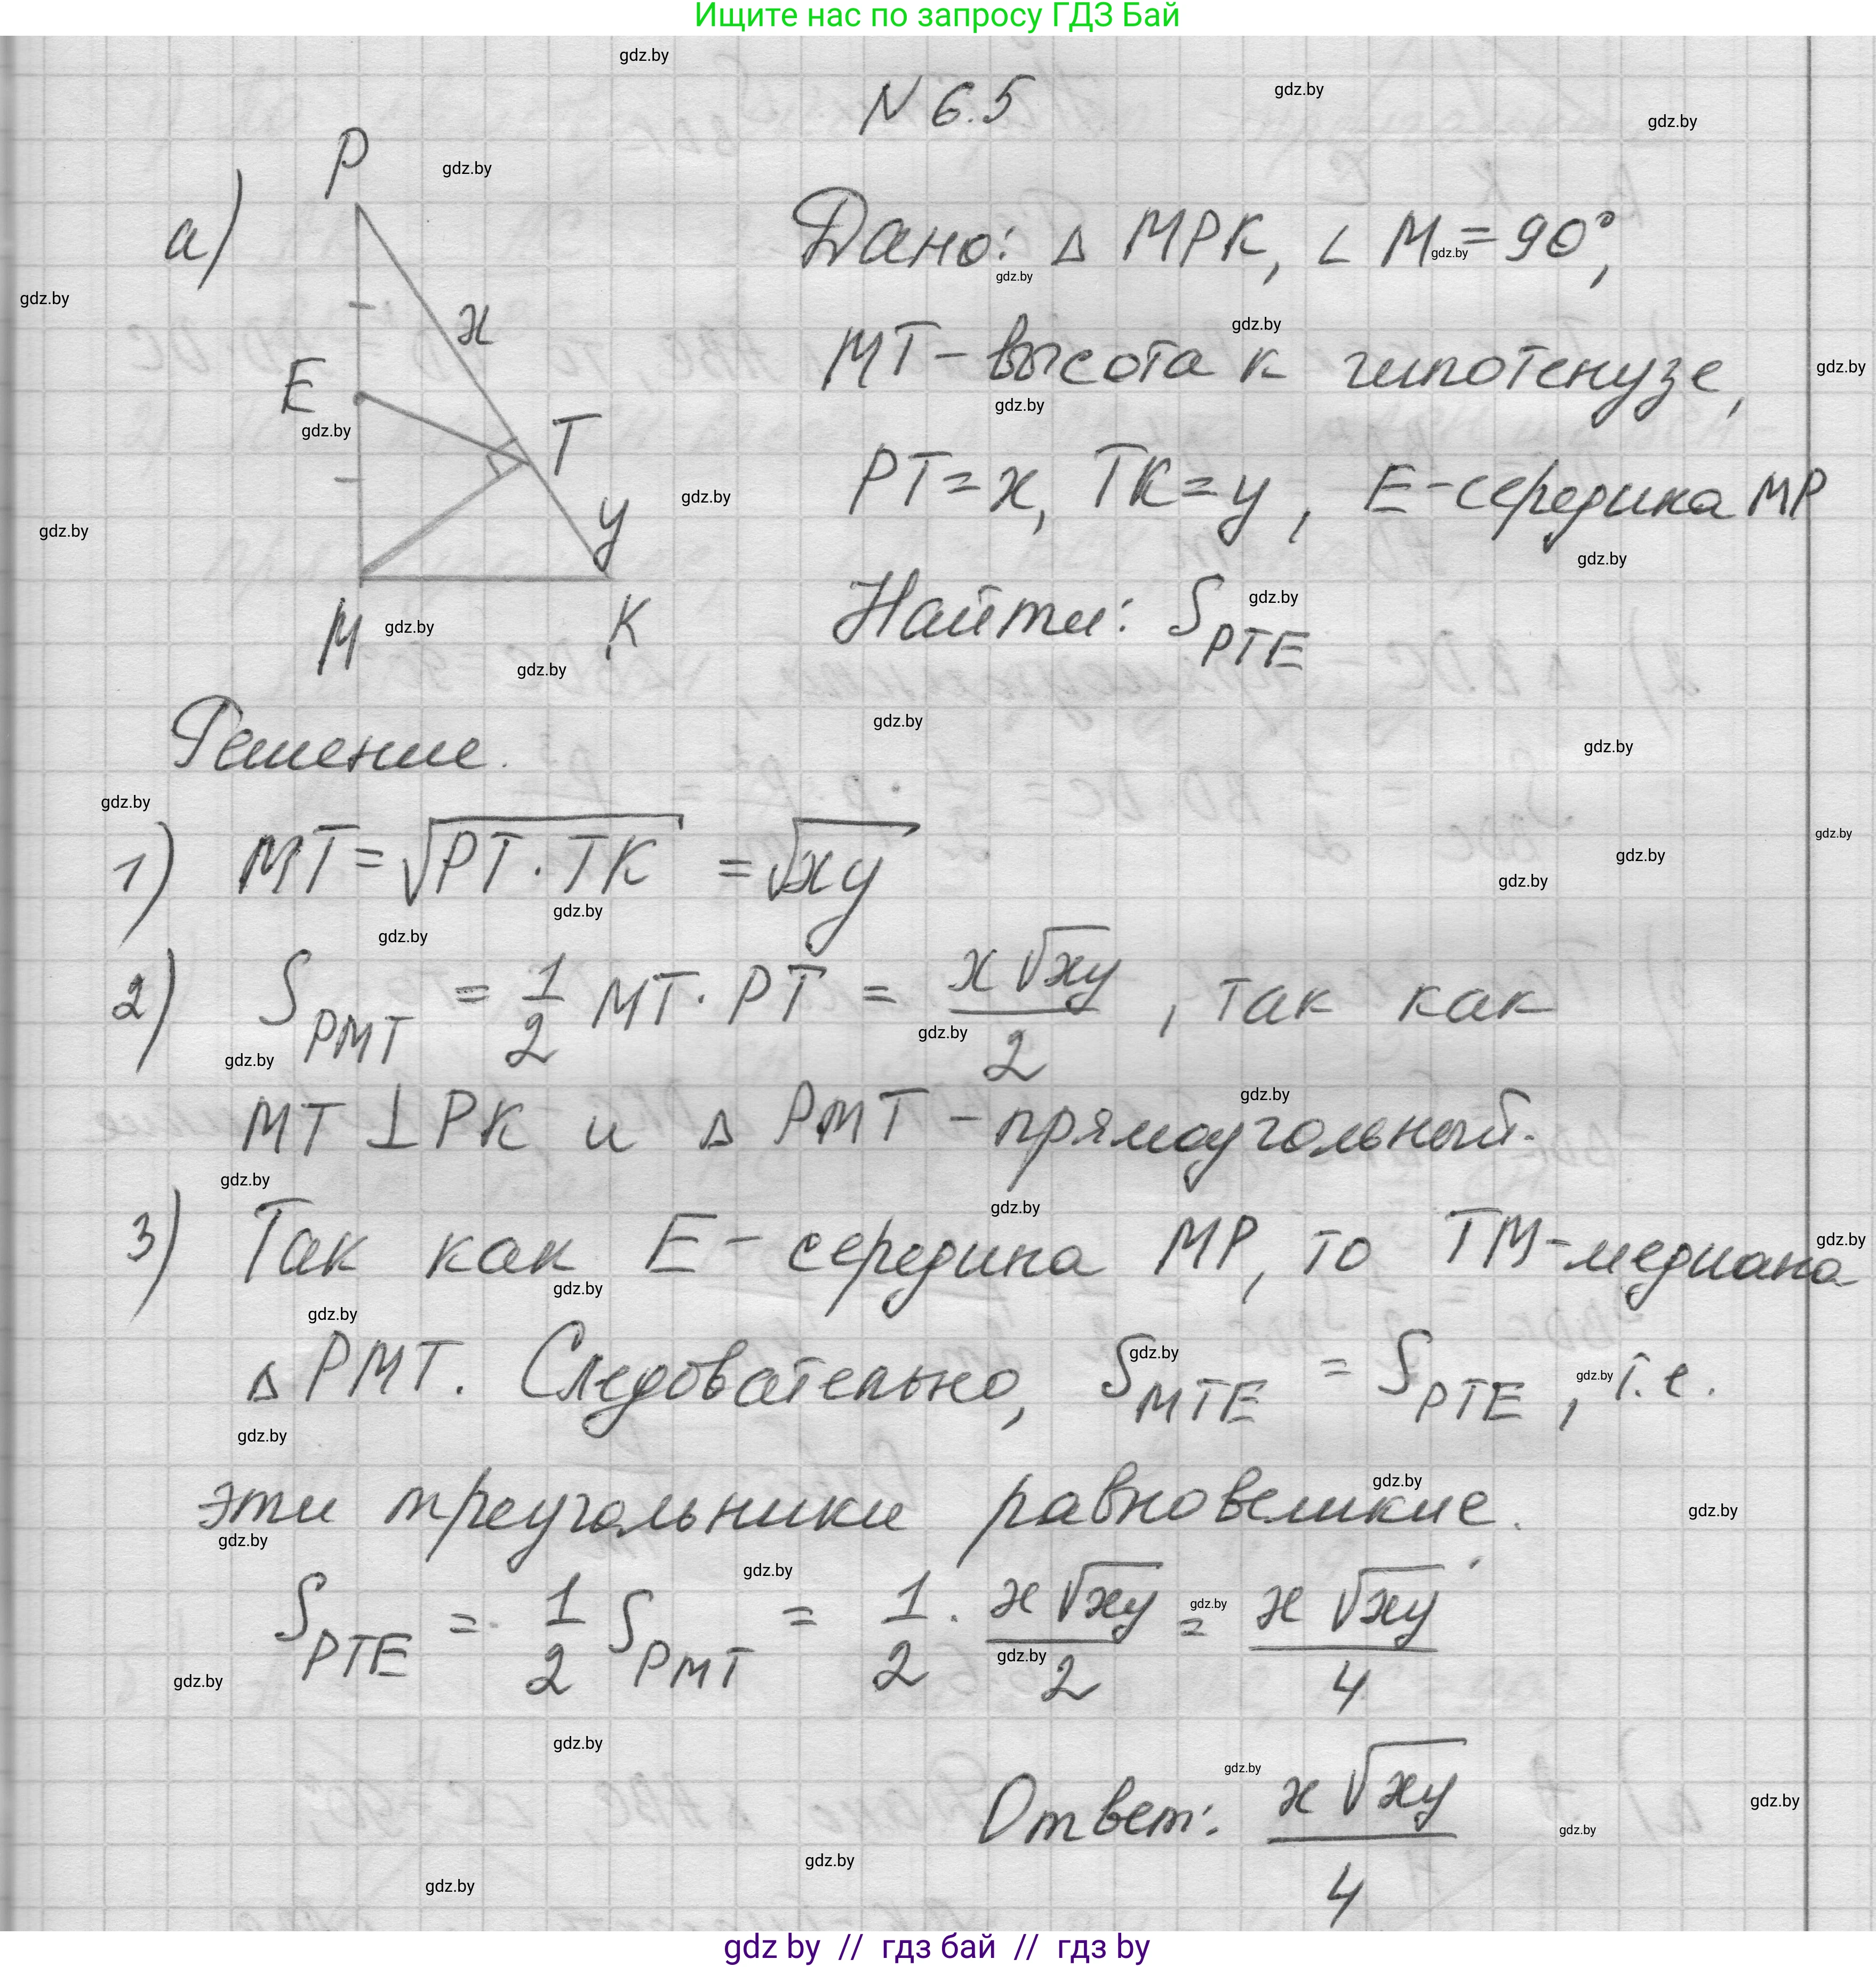 Ищите нас по запросу ГДЗ Бай
N 6.5
а)
P
x
E
T
y
M
K
Дано: Δ MPK, ∠ M = 90°,
MT - высота к гипотенузе,
PT = x, TK = y, E - середина MP
Найти: S_PTE
Решение.
1) MT = √(PT · TK) = √(xy)
2) S_PMT = 1/2 MT · PT = x√(xy)/2, так как
MT ⊥ PK и Δ PMT - прямоугольный.
3) Так как E - середина MP, то TM - медиана
Δ PMT. Следовательно, S_MTE = S_PTE, т.е.
эти треугольники равновеликие.
S_PTE = 1/2 S_PMT = 1/2 · x√(xy)/2 = x√(xy)/4
Ответ: x√(xy)/4
gdz.by
gdz by // гдз бай // гдз by